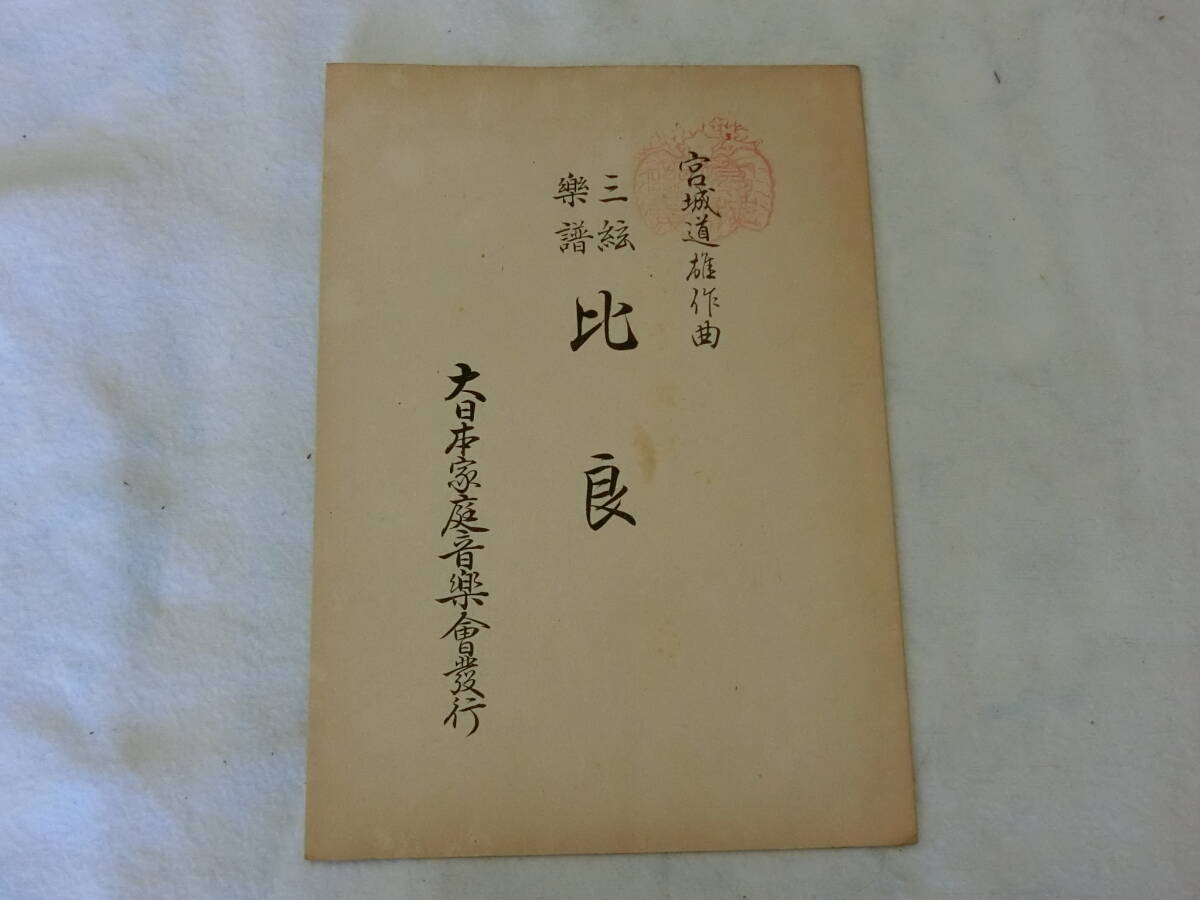 宮城道雄作曲
三絃
樂譜
比良
大日本家庭音樂會發行